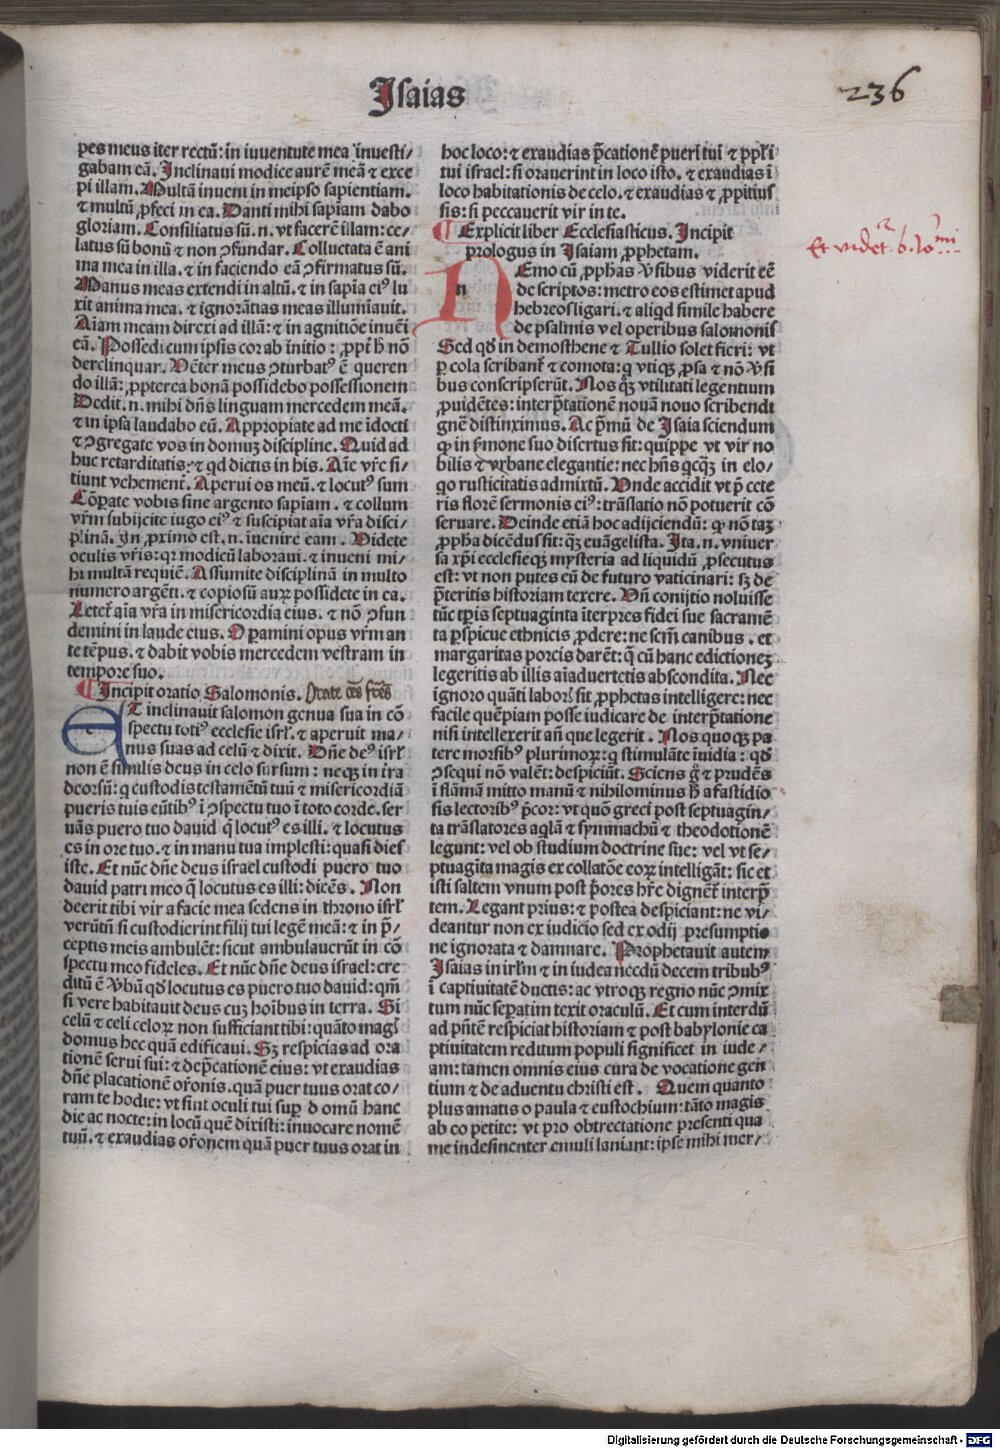 Isaias
236
pes meus iter rectū: in iuventute mea investi/
gabam eā. Inclinavi modice aurē meā ⁊ exce
pi illam. Multā inveni in meipso sapientiam.
⁊ multū ꝓfeci in ea. Danti mihi sapiam dabo
gloriam. Consiliatus sū. n. vt facerē illam: ce/
latus sū bonū ⁊ non ꝯfundar. Colluctata ē ani
ma mea in illa. ⁊ in faciendo eā ꝯfirmatus sū.
Manus meas extendi in altū. ⁊ in sapia eiꝰ lu
xit anima mea. ⁊ ignorātias meas illumiauit.
Aiam meam direxi ad illā: ⁊ in agnitiōe inuēi
eā. Possedi cum ipsis cor ab initio: ꝓpt h̄ nō
derelinquar. Vēter meus ꝯturbatꝰ ē queren
do illā: ꝓpterea bonā possidebo possessionem
Dedit. n. mihi dn̄s linguam mercedem meā.
⁊ in ipsa laudabo eū. Appropiate ad me idocti
⁊ ꝯgregate vos in domuz discipline. Quid ad
huc retardatis: ⁊ qd dictis in his. Aīe vr̄e si/
tiunt vehementr̄. Aperui os meū. ⁊ locutꝰ sum
Cōparate vobis sine argento sapiam. ⁊ collum
vr̄m subijcite iugo eiꝰ ⁊ suscipiat aīa vr̄a disci/
plinā. In ꝓximo est. n. iuenire eam. Videte
oculis vr̄is: qr modicū laboravi. ⁊ inveni mi/
hi multā requiē. Assumite disciplinā in multo
numero argēti. ⁊ copiosū auꝝ possidete in ea.
Letet̄ aīa vr̄a in misericordia eius. ⁊ nō ꝯfun
demini in laude eius. Operamini opus vr̄m an
te tēpus. ⁊ dabit vobis mercedem vestram in
tempore suo.
Incipit oratio Salomonis. Orate oēs fr̄es
ET inclinauit salomon genua sua in cō
spectu totiꝰ ecclesie isrl̄. ⁊ aperuit ma/
nus suas ad celū ⁊ dixit. Dn̄e deꝰ isrl̄
non ē similis deus in celo sursum: neqꝫ in ira
deorsū: q custodis testamētū tuū ⁊ misericordiā
pueris tuis eūtibꝰ i ꝯspectu tuo i toto corde. ser
uās puero tuo dauid q̄ locutꝰ es illi. ⁊ locutus
es in ore tuo. ⁊ in manu tua implesti: quasi dies
iste. Et nūc dn̄e deus israel custodi puero tuo
dauid patri meo q̄ locutus es illi: dicēs. Non
deerit tibi vir a facie mea sedens in throno isrl̄
verūtū si custodierint filij tui legē meā: ⁊ in p̄/
ceptis meis ambulēt: sicut ambulauerūt in cō
spectu meo fideles. Et nūc dn̄e deus israel: cre
ditū ē v̄bū qd̄ locutus es puero tuo dauid: qm̄
si vere habitauit deus cuz hoībus in terra. Si
celū ⁊ celi celoꝝ non sufficiant tibi: quāto mag̓
domus hec quā edificaui. Sꝫ respicias ad ora
tionē serui sui: ⁊ dep̄cationē eius: vt exaudias
dn̄e placationē or̄onis. quā puer tuus orat co/
ram te hodie: vt sint oculi tui sup d omū hanc
die ac nocte: in locū quē dixisti: inuocare nomē
tuū. ⁊ exaudias or̄onem quā puer tuus orat in
hoc loco: ⁊ exaudias p̄cationē pueri tui ⁊ ppl̄i
tui israel: si orauerint in loco isto. ⁊ exaudias i
loco habitationis de celo. ⁊ exaudias ⁊ ꝓpitius
sis: si peccauerit vir in te.
Explicit liber Ecclesiasticus. Incipit
prologus in Isaiam ꝓphetam.
NEmo cū ꝓphas v̄sibus viderit eē
descriptos: metro eos estimet apud
hebreos ligari. ⁊ aliqd simile habere
de psalmis vel operibus salomonis
Sed qd̄ in demosthene ⁊ Tullio solet fieri: vt
ꝑ cola scribant̄ ⁊ comata: q vtiqꝫ ꝓsa ⁊ nō v̄si
bus conscripserūt. Nos qꝫ vtilitati legentium
ꝓuidētes: interp̄tationē nouā nouo scribendi
gnē distinximus. Ac p̄mū de Isaia sciendum
ꝙ in s̄mone suo disertus sit: quippe vt vir no
bilis ⁊ vrbane elegantie: nec hn̄s qcqꝫ in elo/
qo rusticitatis admixtū. Vnde accidit vt p̄ cete
ris florē sermonis eiꝰ: trāslatio nō potuerit cō
seruare. Deinde etiā hoc adijciendū: ꝙ nō taꝫ
ꝓpha dicēdus sit: qꝫ euāgelista. Ita. n. vniuer
sa xp̄i ecclesieqꝫ mysteria ad liquidū ꝓsecutus
est: vt non putes eū de futuro vaticinari: sꝫ de
p̄teritis historiam texere. Vn̄ conijtio noluisse
tūc tp̄is septuaginta iterpres fidei sue sacramē
ta ꝑspicue ethnicis ꝓdere: ne scm̄ canibus. et
margaritas porcis darēt: q̄ cū hanc edictionez
legeritis ab illis aiaduertetis abscondita. Nec
ignoro quāti labor̓ sit ꝓphetas intelligere: nec
facile quēpiam posse iudicare de interp̄tatione
nisi intellexerit an̄ que legerit. Nos quoqꝫ pa
tere morsibꝰ plurimoꝝ: q stimulāte iuidia: qd̄
ꝯsequi nō valēt: despiciūt. Sciens g̊ ⁊ prudēs
i flāmā mitto manū ⁊ nihilominus h̄ a fastidio
sis lectoribꝰ p̄cor: vt quō greci post septuagin/
ta trāslatores aqlā ⁊ symmachū ⁊ theodotionē
legunt: vel ob studium doctrine sue: vel vt se/
ptuagita magis ex collatōe eoꝝ intelligāt: sic et
isti saltem vnum post p̄ores hr̄e dignēt̄ interp̄
tem. Legant prius: ⁊ postea despiciant: ne vi/
deantur non ex iudicio sed ex odij presumptio
ne ignorata ⁊ damnare. Prophetauit autem
Isaias in irl̄m ⁊ in iudea necdū decem tribubꝰ
i captiuitatē ductis: ac vtroqꝫ regno nūc ꝯmix
tum nūc seꝑatim texit oraculū. Et cum interdū
ad pn̄tē respiciat historiam ⁊ post babylonie ca
ptiuitatem reditum populi significet in iude/
am: tamen omnis eius cura de vocatione gen
tium ⁊ de aduentu christi est. Quem quanto
plus amatis o paula ⁊ eustochium: tāto magis
ab eo petite: vt pro obtrectatione presenti qua
me indesinenter emuli laniant: ipse mihi mer/
Digitalisierung gefördert durch die Deutsche Forschungsgemeinschaft - DFG